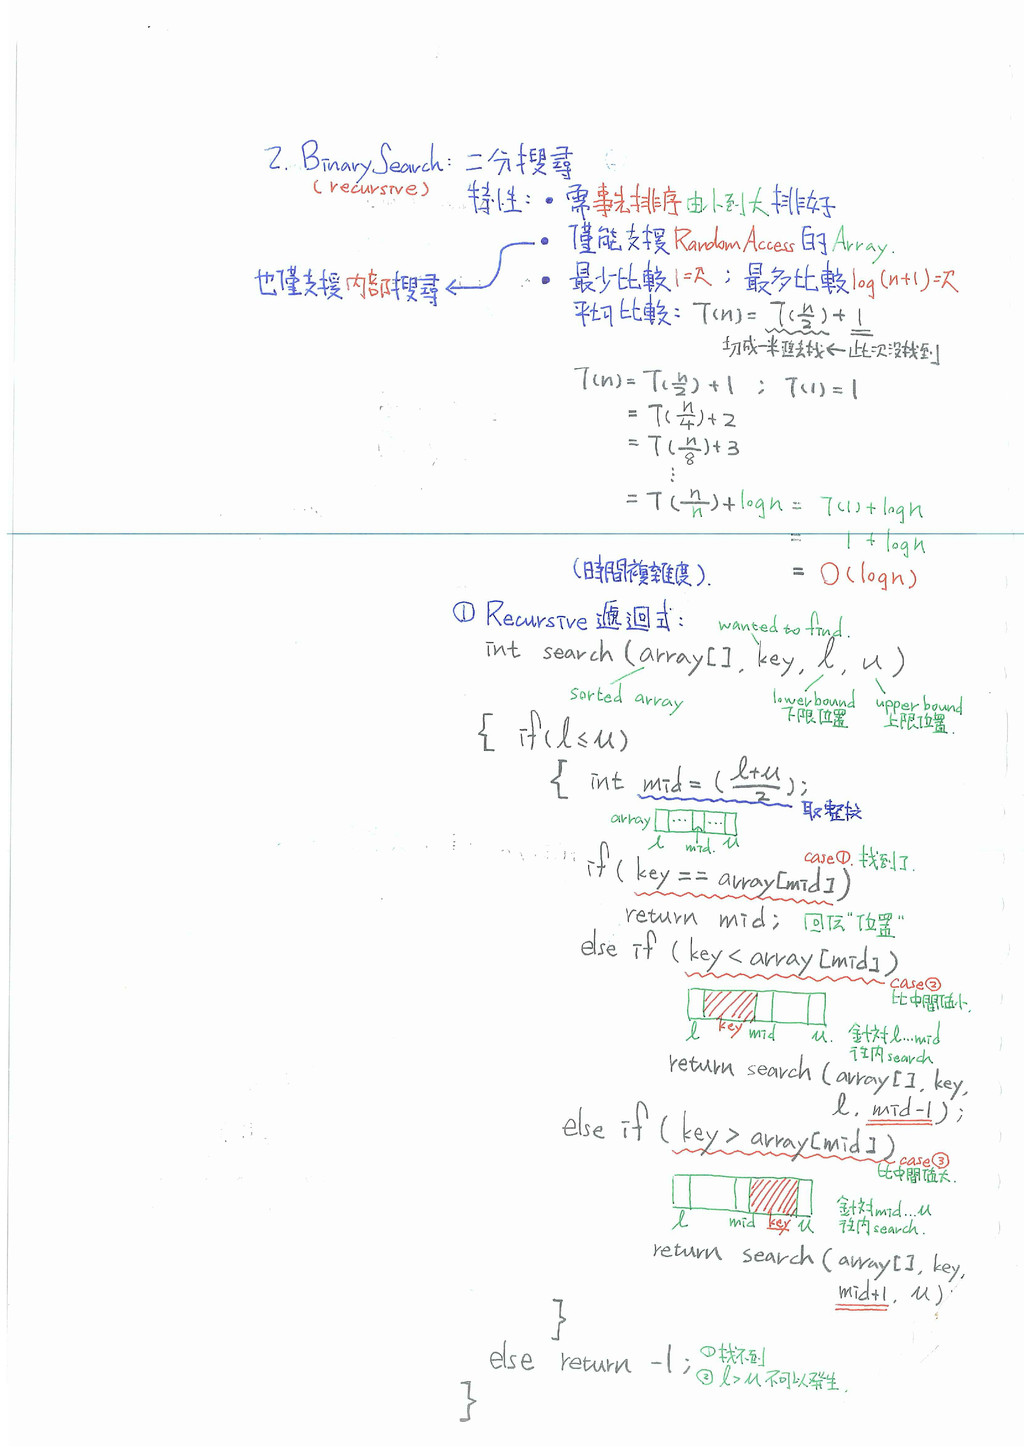 2. Binary Search: 二分搜尋
(recursive)
特性: • 需事先排序由小到大排好
• 僅能支援Random Access的Array.
也僅支援內部搜尋 ←
• 最少比較1次 ; 最多比較log(n+1)次
平均比較: T(n) = T(n/2) + 1
切成一半進去找 ← 此次沒找到
T(n) = T(n/2) + 1 ; T(1) = 1
= T(n/4) + 2
= T(n/8) + 3
⋮
= T(n/n) + logn = T(1) + logn
= 1 + logn
(時間複雜度). = O(logn)
① Recursive 遞迴式:
wanted to find.
int search (array[], key, l, u)
sorted array
lower bound
下限位置
upper bound
上限位置.
{ if(l ≤ u)
{ int mid = (l+u/2);
取整數
array ... ...
l mid. u
case①. 找到了.
if( key == array[mid])
return mid; 回傳"位置"
else if (key < array[mid])
case②
比中間值小.
l key mid u.
針對l...mid
往內search
return search (array[], key,
l, mid-1);
else if (key > array[mid])
case③
比中間值大.
l mid key u
針對mid...u
往內search.
return search (array[], key,
mid+1, u)
}
else return -1; ①找不到
② l>u 不可以發生.
}